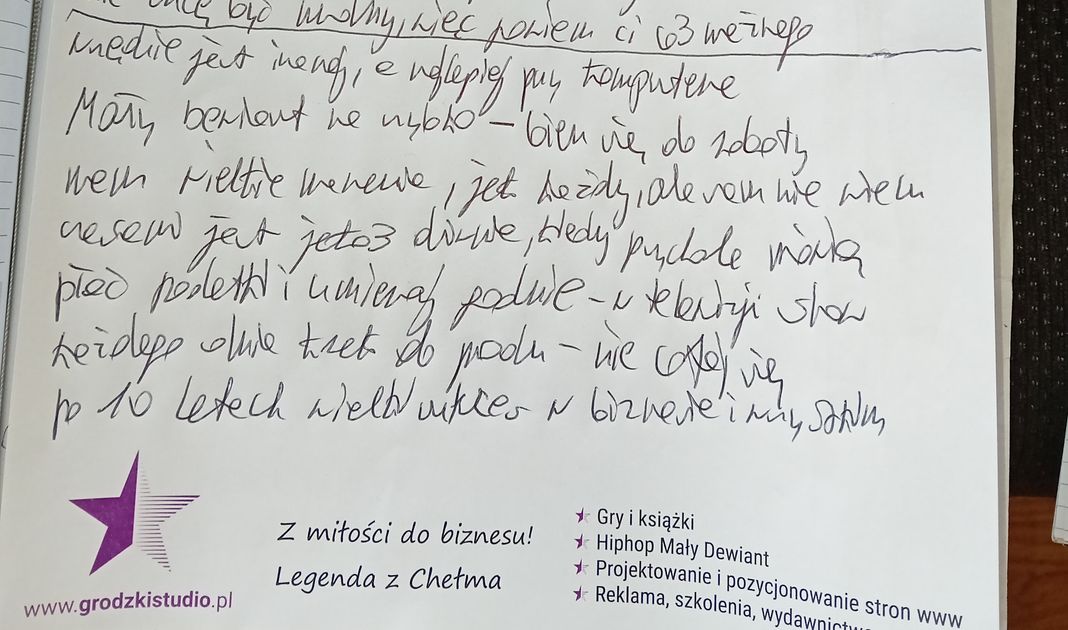 chcę być modny, więc powiem ci coś ważnego
wszędzie jest inaczej, a najlepiej przy komputerze
Mały bermont na szybko – biorę się do roboty
mam wielkie marzenia, jak każdy, ale sam nie wiem
czasem jest jakoś dziwnie, kiedy psychole mówią
płać podatki i umieraj godnie – w telewizji show
każdego dnia krok do przodu – nie cofaj się
po 10 latach wielki sukces w biznesie i
Z miłości do biznesu!
Legenda z Chełma
www.grodzkistudio.pl
Gry i książki
Hiphop Mały Dewiant
Projektowanie i pozycjonowanie stron www
Reklama, szkolenia, wydawnictwo